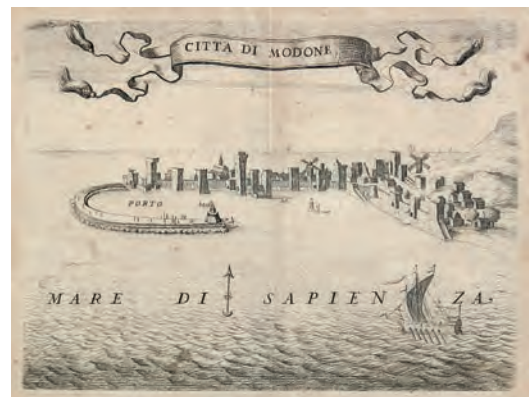 CITTA DI MODONE
PORTO
MARE DI SAPIENZA.